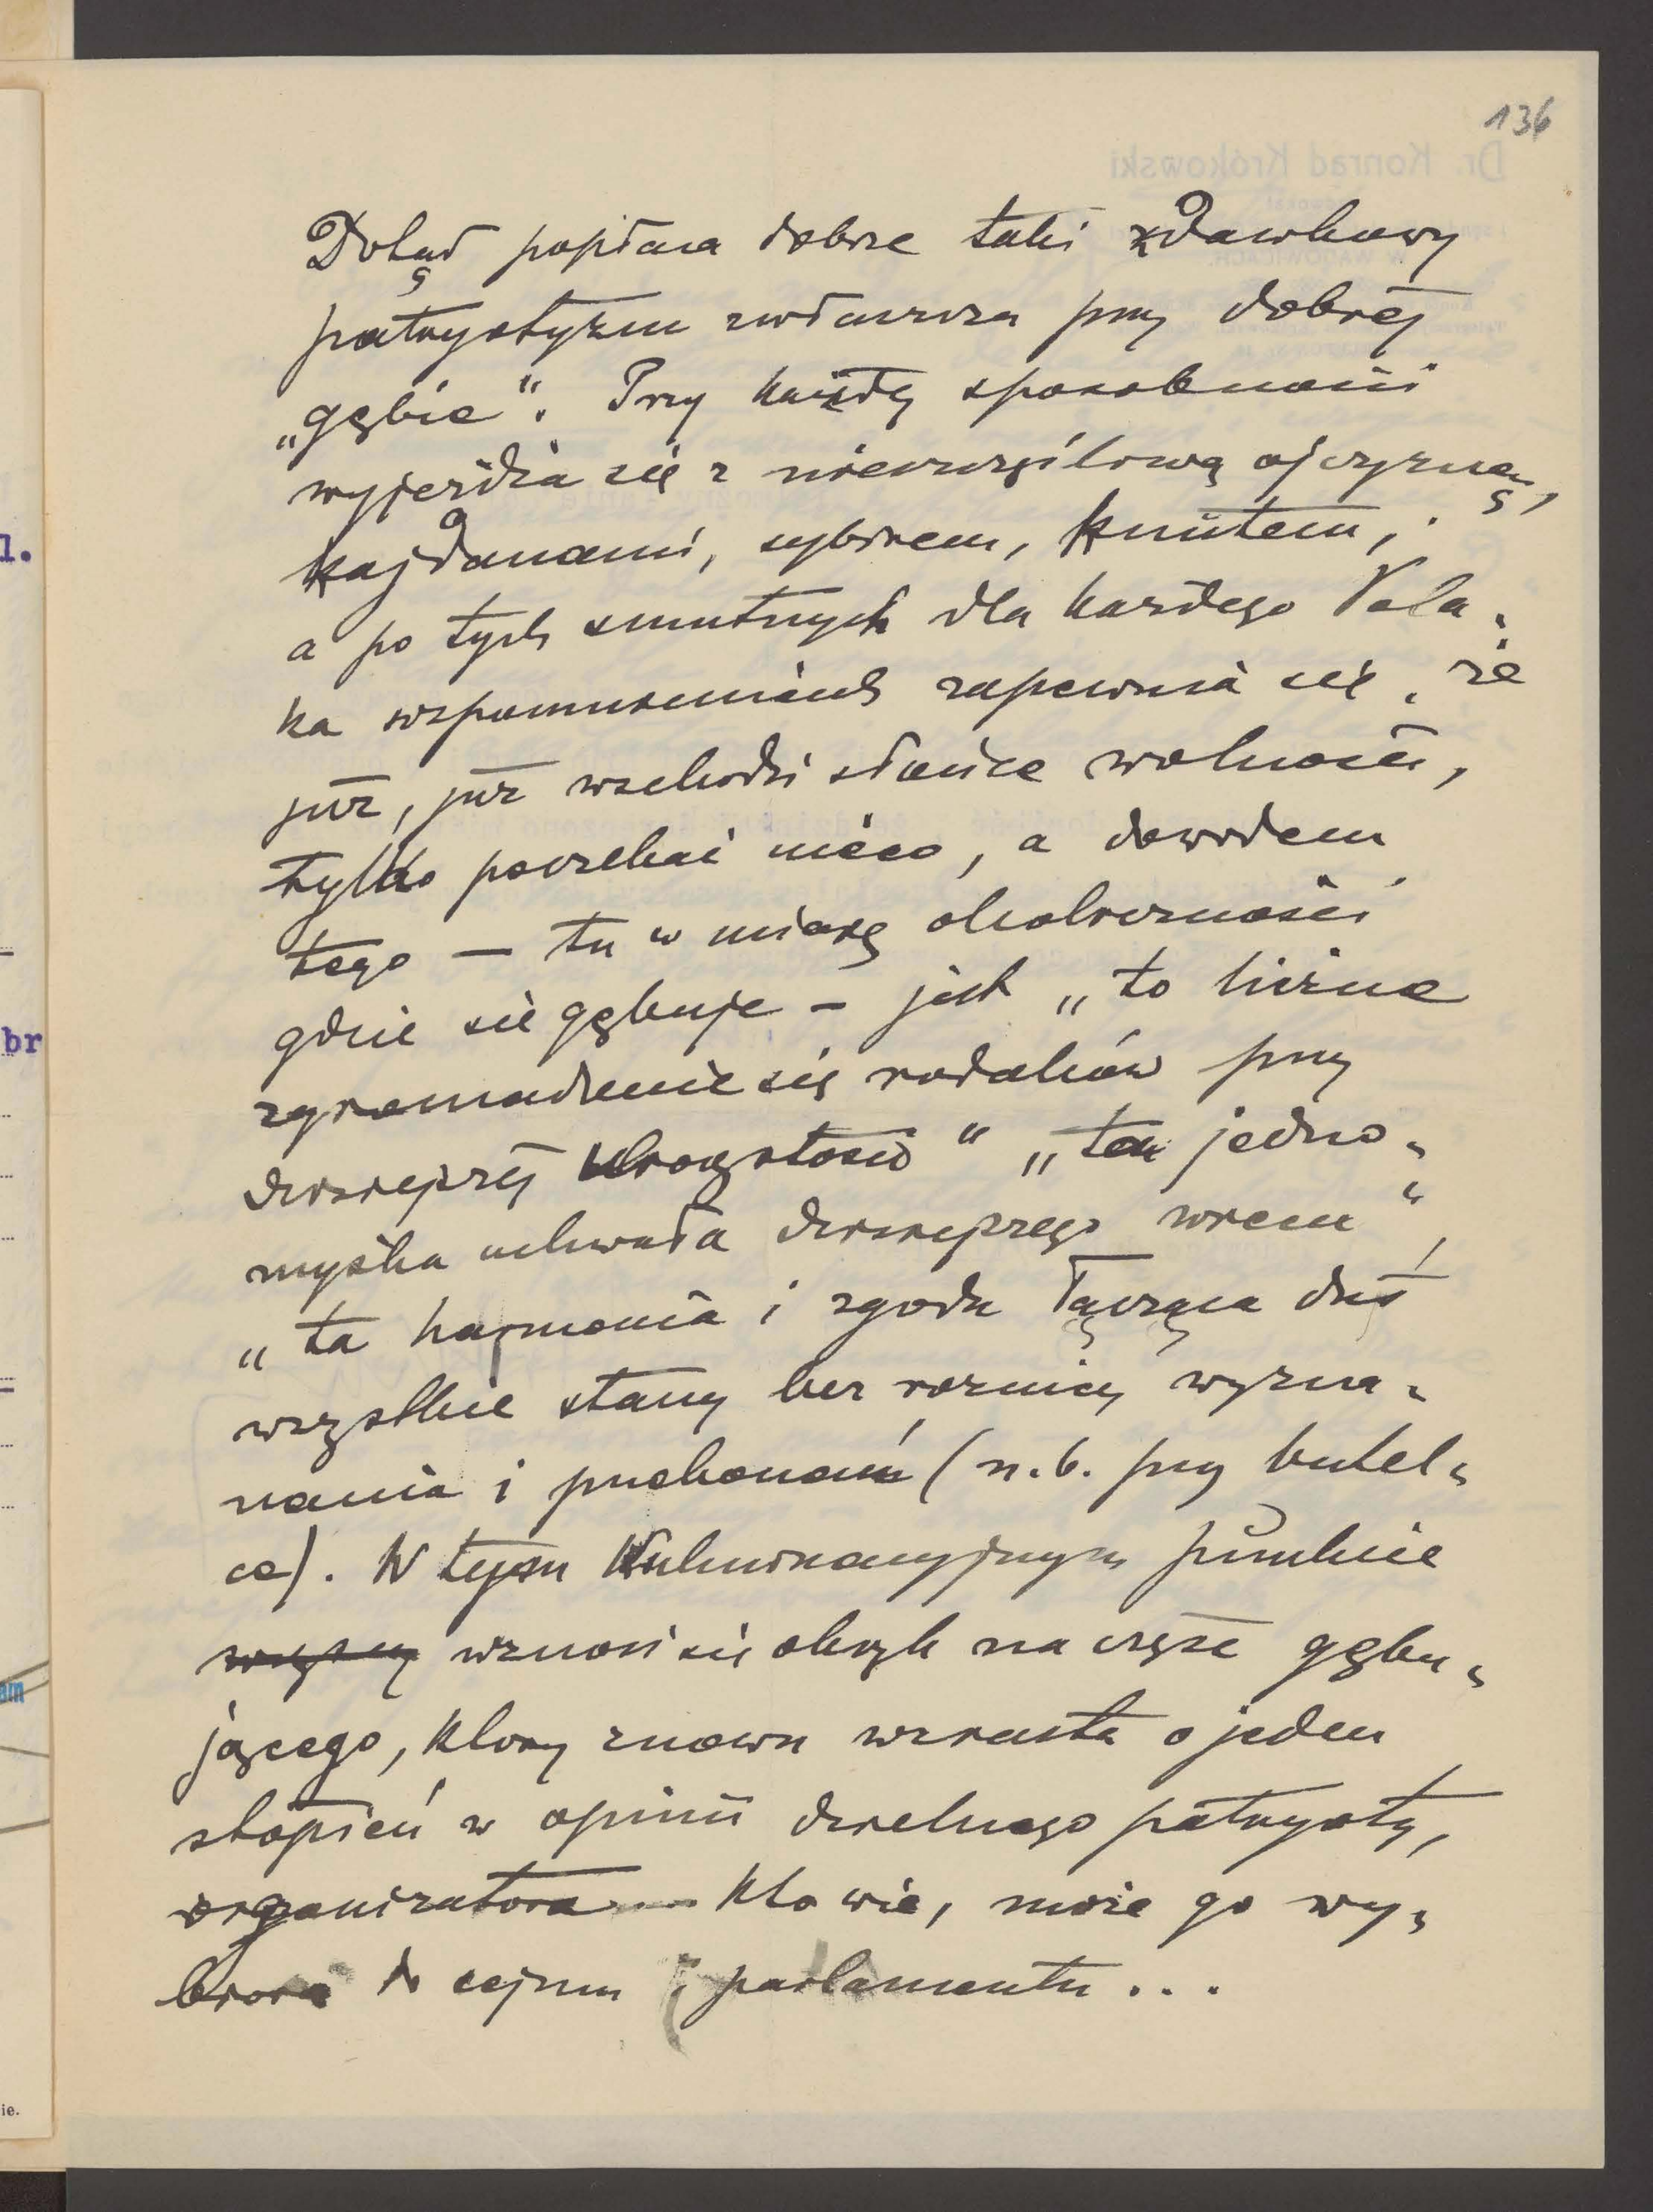 136
Dr. Konrad Krókowski
Dotąd popłaca dobrze taki zdawkowy
patryotyzm zwłaszcza przy dobrej
„gębie“. Przy każdej sposobności
wyjeżdża się z nieszczęśliwą ojczyzną,
kajdanami, sybirem, knutem,
a po tych smutnych dla każdego Pola-
ka wspomnieniach zapewnia się, że
już, już wschodzi słońce wolności,
tylko poczekać nieco, a dowodem
tego — tu w miarę okoliczności
gdzie się gębuje — jest „to liczne
zgromadzenie się rodaków przy
dzisiejszej uroczystości“ „ta jedno-
myślna uchwała dzisiejszego wiecu“,
„ta harmonia i zgoda łącząca dziś
wszystkie stany bez różnicy wyzna-
nania i przekonań (n.b. przy butel-
ce). W tym kulminacyjnym punkcie
wznosi się okrzyk na cześć gębu-
jącego, który znowu wzrasta o jeden
stopień w opinii dzielnego patryoty,
organizatora — kto wie, może go wy-
biorą do sejmu i parlamentu...
l.
br
am
ie.